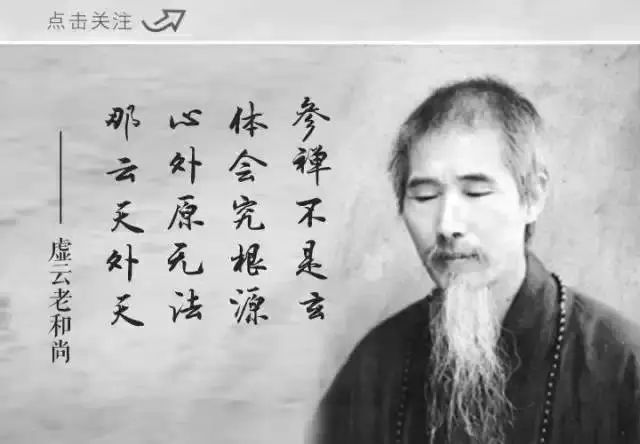 点击关注
参禅不是玄
体会究根源
心外原无法
那云天外天
虚云老和尚